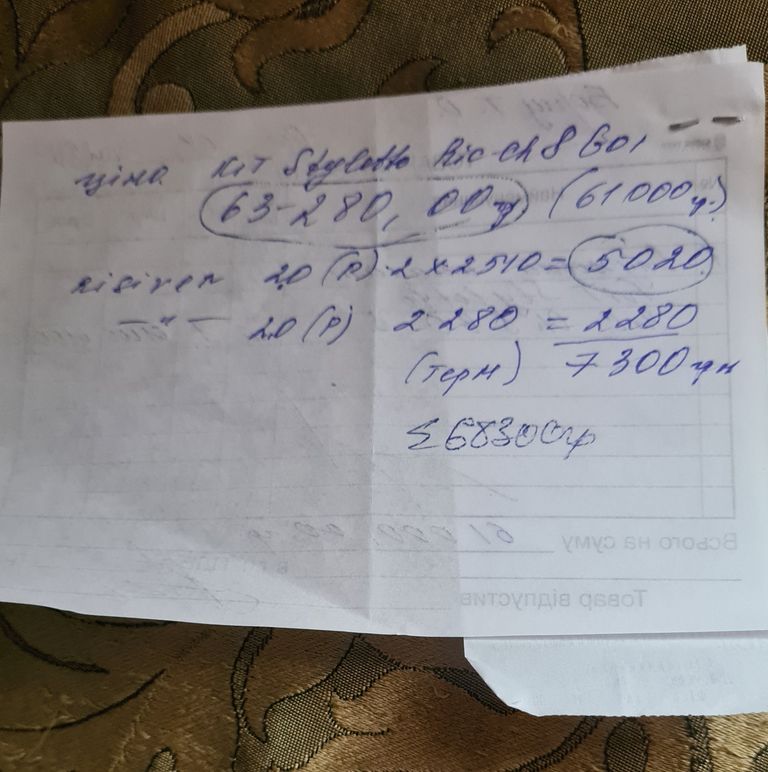 ціна Кіт Styletto Ric-ch 8 G01
63-280,00гр (61000гр.)
ресівер 2.0 (P) 2 x 2510 = 5020
— " — 2.0 (P) 2280 = 2280
(терм) 7300грн
Σ 68300гр
61 000
Всього на суму
Товар відпустив